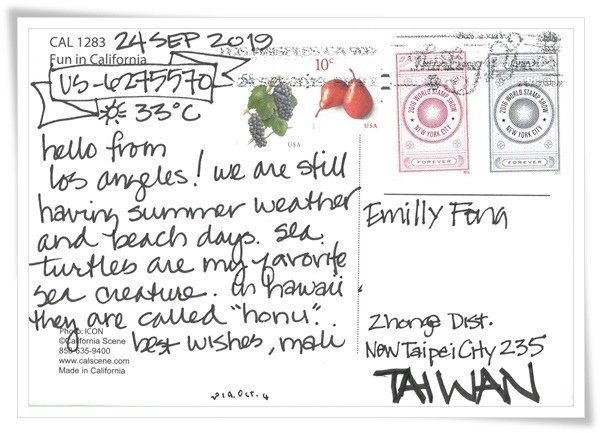 CAL 1283 24 SEP 2019
Fun in California
US-6275570
33°C
hello from
los angeles! we are still
having summer weather
and beach days. sea
turtles are my favorite
sea creature. in hawaii
they are called "honu".
best wishes, mali
Photo: ICON
©California Scene
858-635-9400
www.calscene.com
Made in California
10c
USA
USA
2016 WORLD STAMP SHOW
NEW YORK CITY
FOREVER
2016 WORLD STAMP SHOW
NEW YORK CITY
FOREVER
Emilly Fong
Zhonge Dist.
New Taipei City 235
TAIWAN